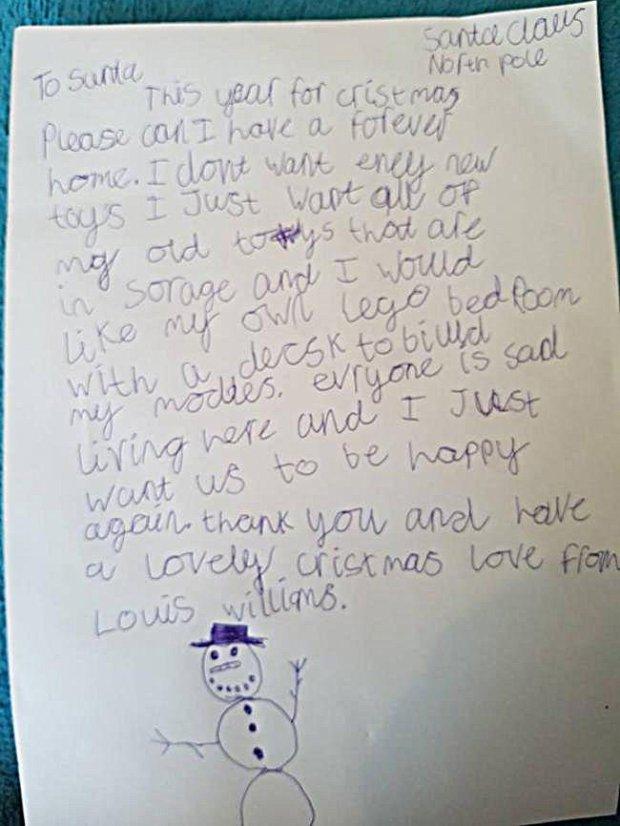 Santa Claus
North pole
To Santa
This year for cristmas
Please can I have a forever
home. I dont want eney new
toys I Just want all of
my old toys that are
in sorage and I would
like my own lego bedroom
with a decsk to biulld
my moddles. evryone is sad
living here and I Just
want us to be happy
again. thank you and have
a lovely cristmas love from
Louis williams.